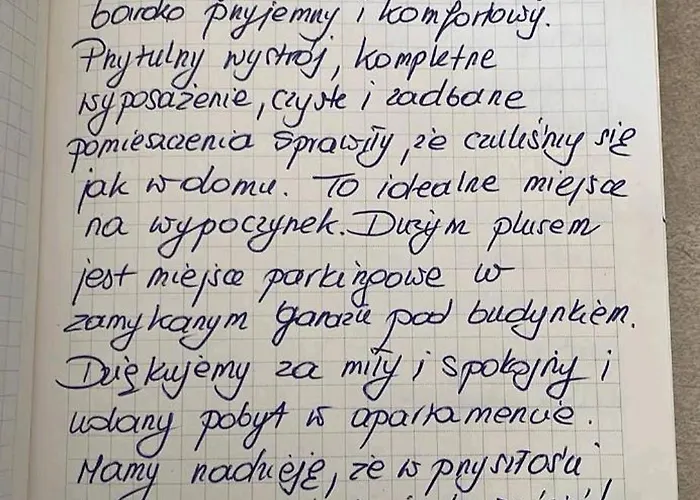 bardzo przyjemny i komfortowy.
Przytulny wystrój, kompletne
wyposażenie, czyste i zadbane
pomieszczenia sprawiły, że czuliśmy się
jak w domu. To idealne miejsce
na wypoczynek. Dużym plusem
jest miejsce parkingowe w
zamykanym garażu pod budynkiem.
Dziękujemy za miły i spokojny i
udany pobyt w apartamencie.
Mamy nadzieję, że w przyszłości